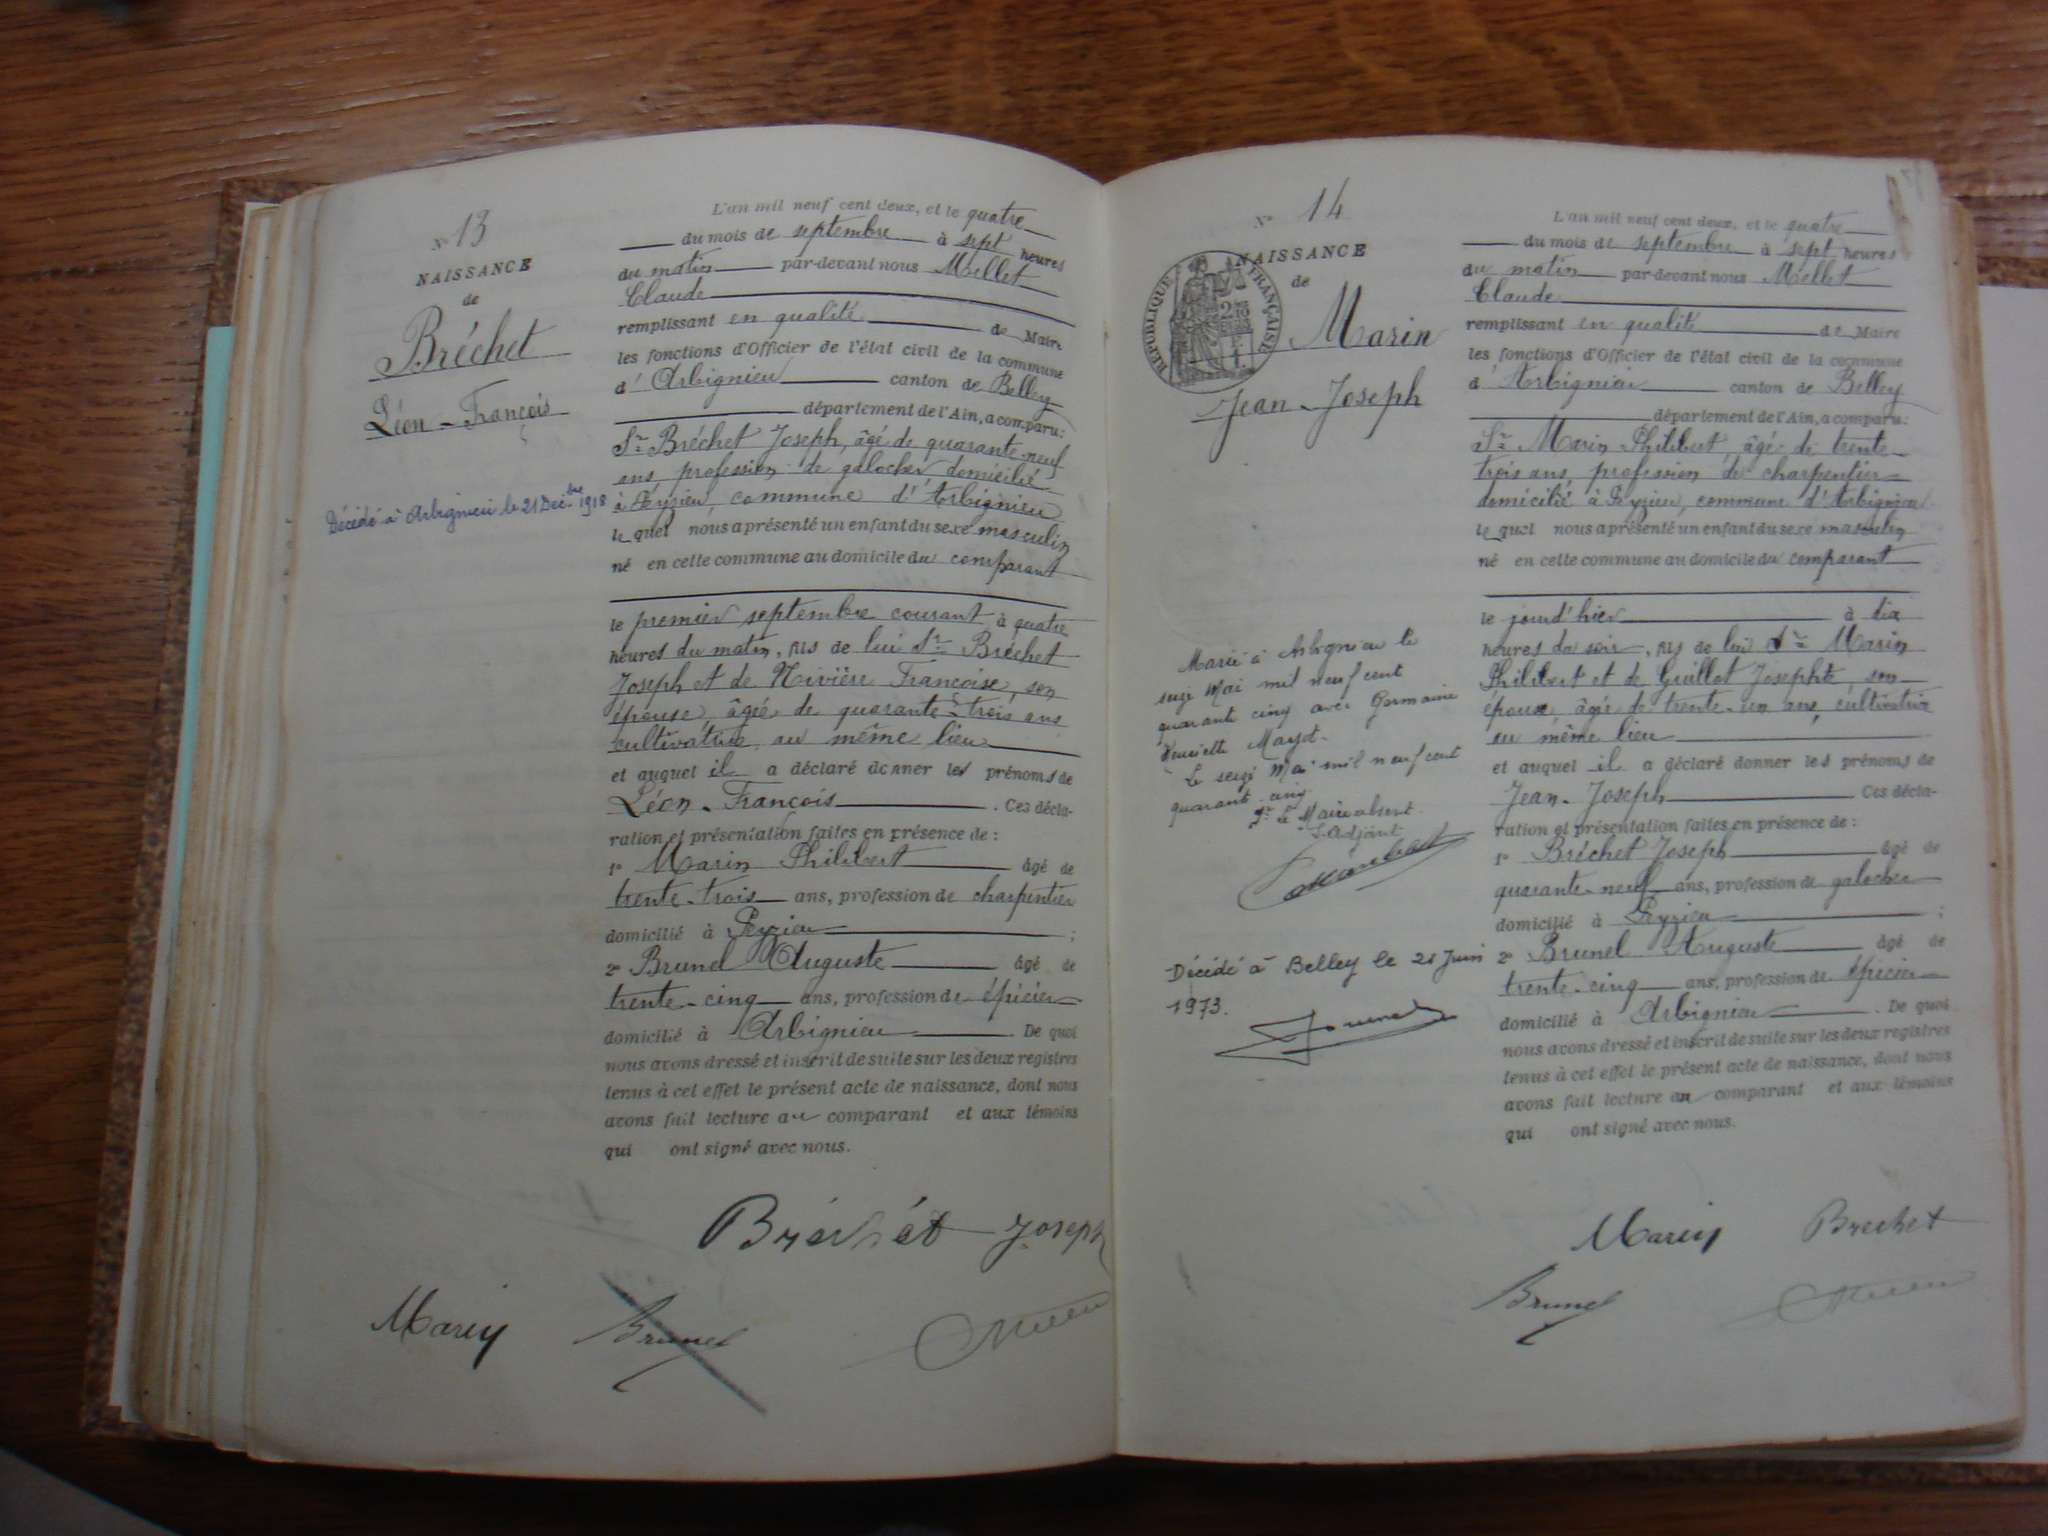 N° 13
NAISSANCE
de
Bréchet
Léon-François
Décédé à Arbignieu le 21 Déc.bre 1918
L'an mil neuf cent deux, et le quatre
du mois de septembre à sept heures
du matin par-devant nous Mellet
Claude
remplissant en qualité de Maire
les fonctions d'Officier de l'état civil de la commune
d'Arbignieu canton de Belley
département de l'Ain, a comparu:
Sr Bréchet Joseph, âgé de quarante-neuf
ans, profession de galocher, domicilié
à Peyzieu, commune d'Arbignieu
lequel nous a présenté un enfant du sexe masculin
né en cette commune au domicile du comparant
le premier septembre courant à quatre
heures du matin, fils de lui Sr Bréchet
Joseph et de Rivière Françoise, son
épouse, âgée de quarante-trois ans
cultivatrice au même lieu
et auquel il a déclaré donner les prénoms de
Léon-François. Ces décla-
ration et présentation faites en présence de:
1° Marin Philibert âgé de
trente-trois ans, profession de charpentier
domicilié à Peyzieu;
2° Brunel Auguste âgé de
trente-cinq ans, profession de épicier
domicilié à Arbignieu De quoi
nous avons dressé et inscrit de suite sur les deux registres
tenus à cet effet le présent acte de naissance, dont nous
avons fait lecture au comparant et aux témoins
qui ont signé avec nous.
Bréchet Joseph
Marin Brunel
N° 14
NAISSANCE
de
RÉPUBLIQUE FRANÇAISE
Marin
Jean-Joseph
Marié à Arbignieu le
seize Mai mil neuf cent
quarante cinq avec Germaine
Henriette Mayot.
Le seize Mai mil neuf cent
quarante-cinq
Pr le Maire absent
L'Adjoint
Décédé à Belley le 21 Juin
1973.
L'an mil neuf cent deux, et le quatre
du mois de septembre à sept heures
du matin par-devant nous Mellet
Claude
remplissant en qualité de Maire
les fonctions d'Officier de l'état civil de la commune
d'Arbignieu canton de Belley
département de l'Ain, a comparu:
Sr Marin Philibert, âgé de trente-
trois ans, profession de charpentier
domicilié à Peyzieu, commune d'Arbignieu
lequel nous a présenté un enfant du sexe masculin
né en cette commune au domicile du comparant
le jourd'hier à dix
heures du soir, fils de lui Sr Marin
Philibert et de Guillot Josephte, son
épouse, âgée de trente-un ans, cultivatrice
au même lieu
et auquel il a déclaré donner les prénoms de
Jean-Joseph Ces décla-
ration et présentation faites en présence de:
1° Bréchet Joseph âgé de
quarante-neuf ans, profession de galocher
domicilié à Peyzieu;
2° Brunel Auguste âgé de
trente-cinq ans, profession de épicier
domicilié à Arbignieu. De quoi
nous avons dressé et inscrit de suite sur les deux registres
tenus à cet effet le présent acte de naissance, dont nous
avons fait lecture au comparant et aux témoins
qui ont signé avec nous.
Marin Brechet
Brunel